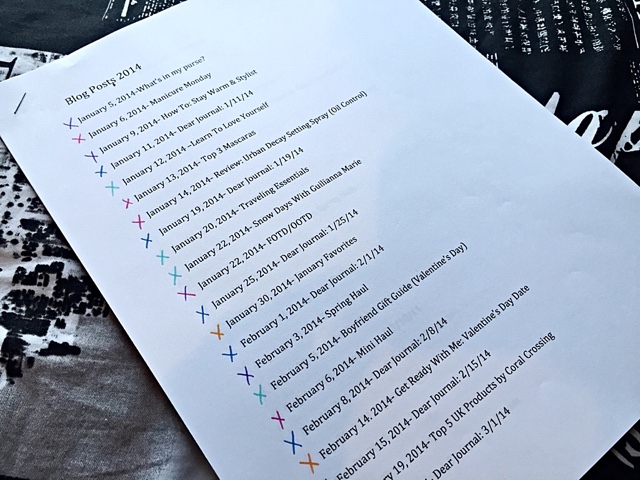 Blog Posts 2014
January 5, 2014-What's in my purse?
January 6, 2014- Manicure Monday
January 9, 2014- How To: Stay Warm & Stylist
January 11, 2014- Dear Journal: 1/11/14
January 12, 2014 -Learn To Love Yourself
January 13, 2014- Top 3 Mascaras
January 14, 2014- Review: Urban Decay Setting Spray (Oil Control)
January 19, 2014- Dear Journal: 1/19/14
January 20, 2014 -Traveling Essentials
January 22, 2014- Snow Days With Gullianna Marie
January 22, 2014- FOTD/OOTD
January 25, 2014- Dear Journal: 1/25/14
January 30, 2014- January Favorites
February 1, 2014- Dear Journal: 2/1/14
February 3, 2014 -Spring Haul
February 5, 2014- Boyfriend Gift Guide (Valentine's Day)
February 6, 2014- Mini Haul
February 8, 2014- Dear Journal: 2/8/14
February 14, 2014- Get Ready With Me: Valentine's Day Date
February 15, 2014- Dear Journal: 2/15/14
19, 2014- Top 5 UK Products by Coral Crossing
- Dear Journal: 3/1/14